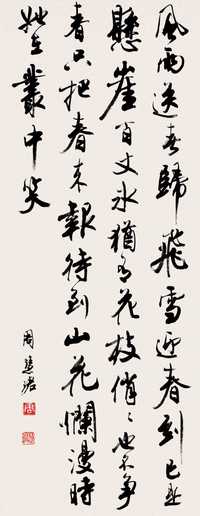 風雨送春歸飛雪迎春到已是
懸崖百丈冰猶有花枝俏〻也不爭
春只把春來報待到山花爛漫時
她在叢中笑
周慧珺